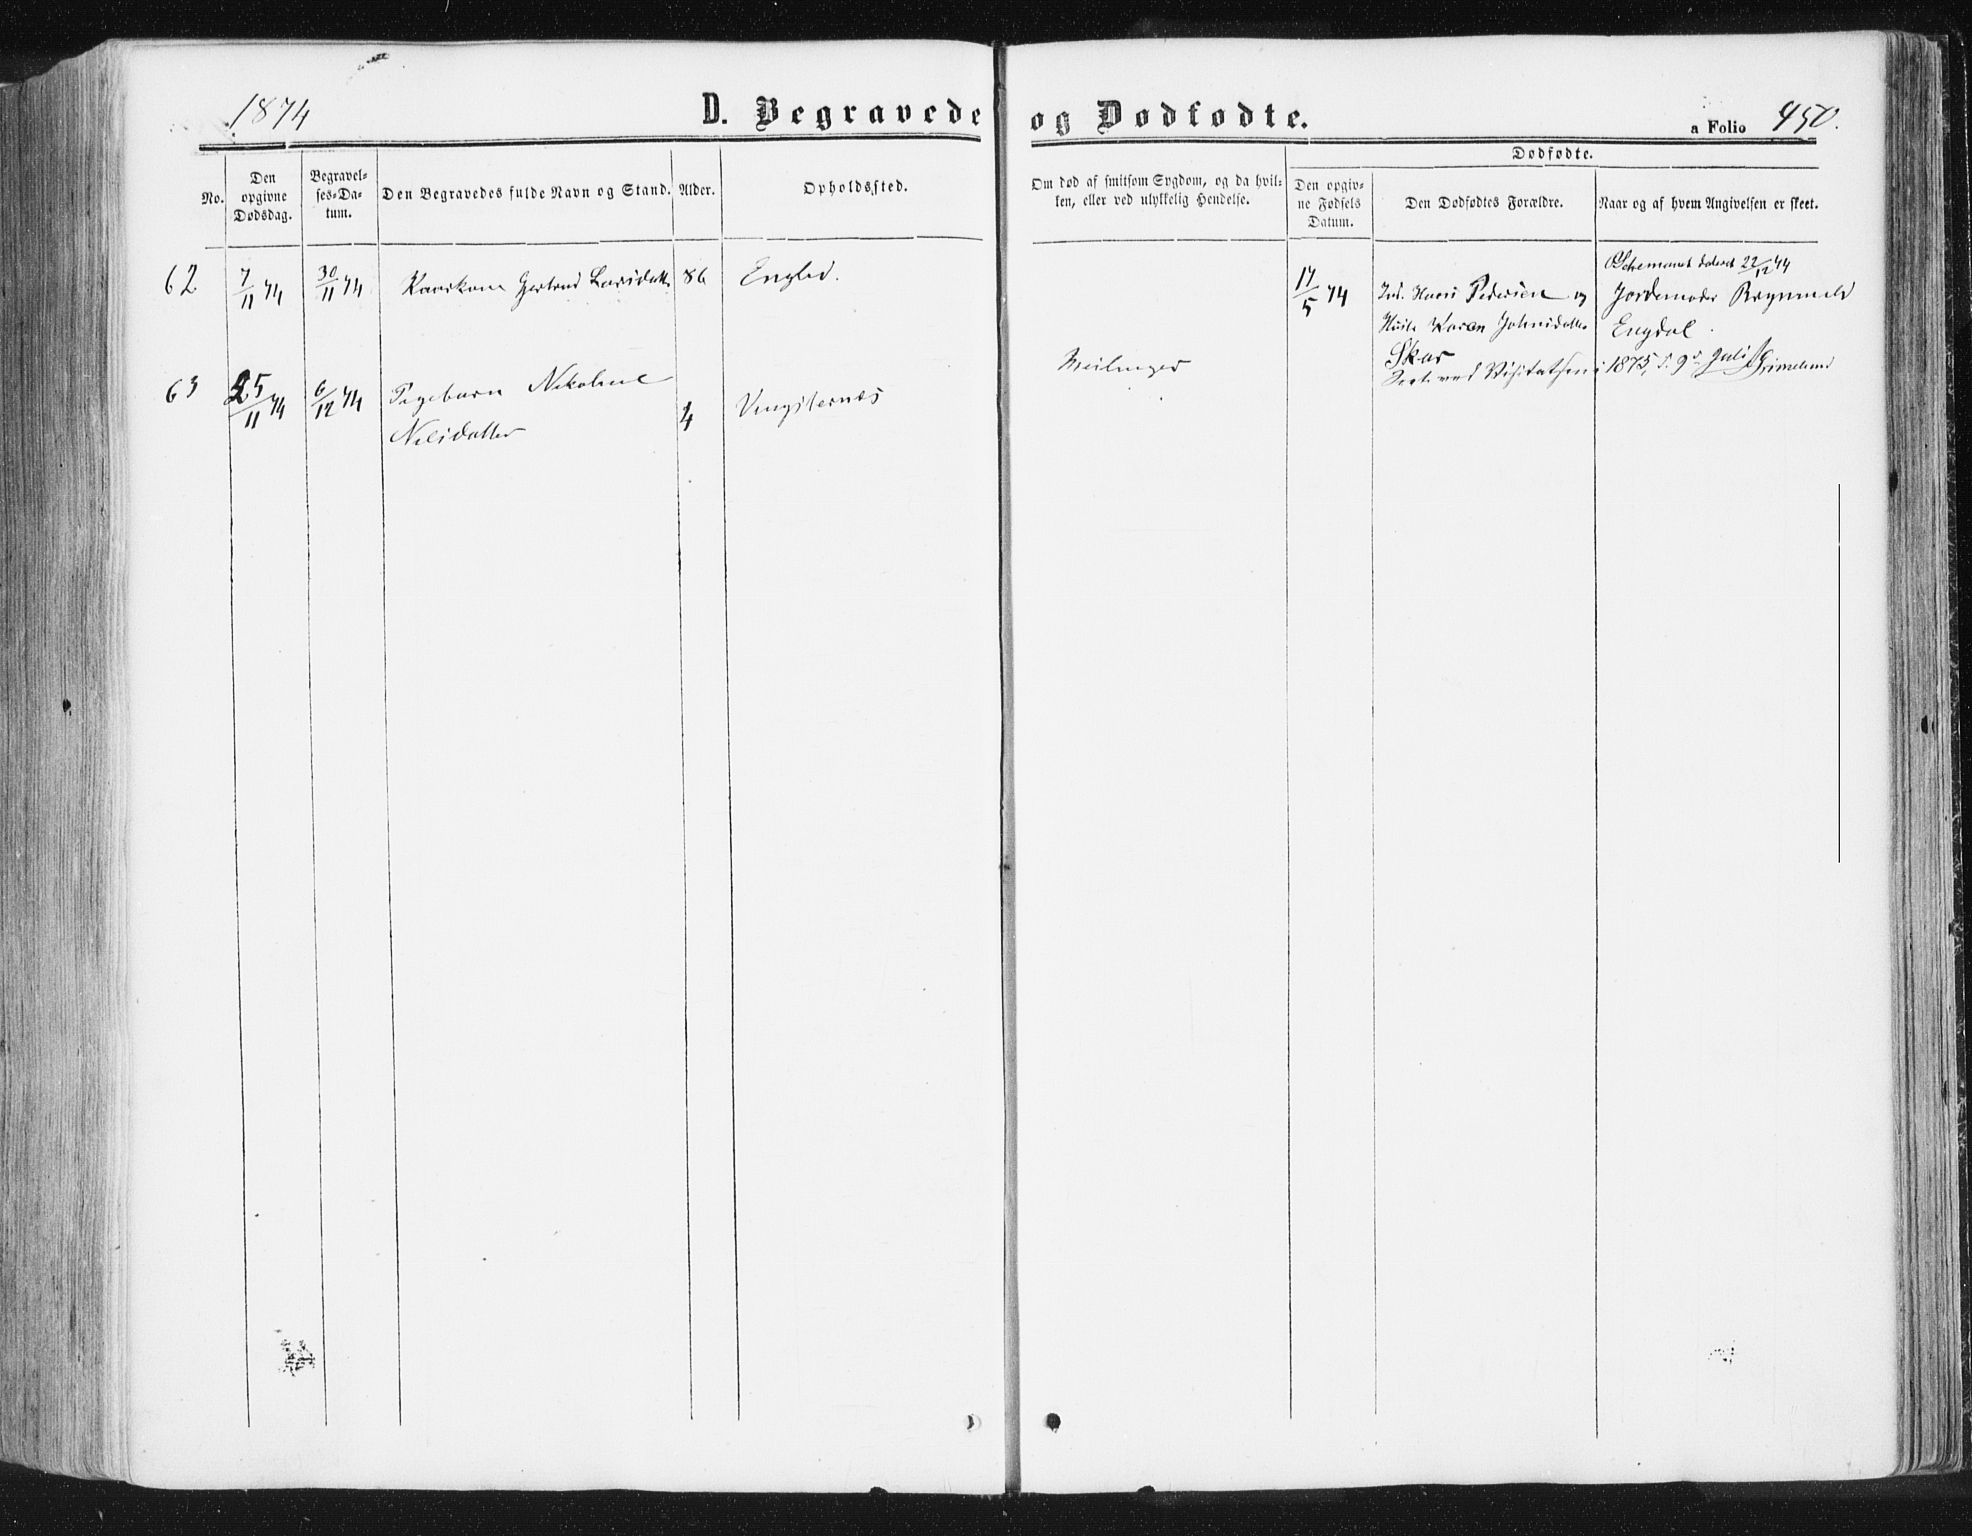 1874
D. Begravede og Dødfødte.
a Folio 450.
No.
Den opgivne Dødsdag.
Begravelses-Datum.
Den Begravedes fulde Navn og Stand.
Alder.
Opholdssted.
Om død af smitsom Sygdom, og da hvilken, eller ved ulykkelig Hendelse.
Dødfødte.
Den opgivne Fødsels Datum.
Den Dødfødtes Forældre.
Naar og af hvem Angivelsen er skeet.
62 7/11 74 30/11 74 Kaarkone Gertrud Larsdatter 86 Englid.
17/5 74 Ind. Hans Pedersen og
Huste Karen Johnsdatter
Skar
Schemaet dateret 22/12 74
Jordemoder Brynnild
Engdal.
63 25/11 74 6/12 74 Pagebarn Nikoline
Nilsdatter
4 Vingsternes
Seet ved Visitatsen i 1875, d. 9de Juli Grimelund